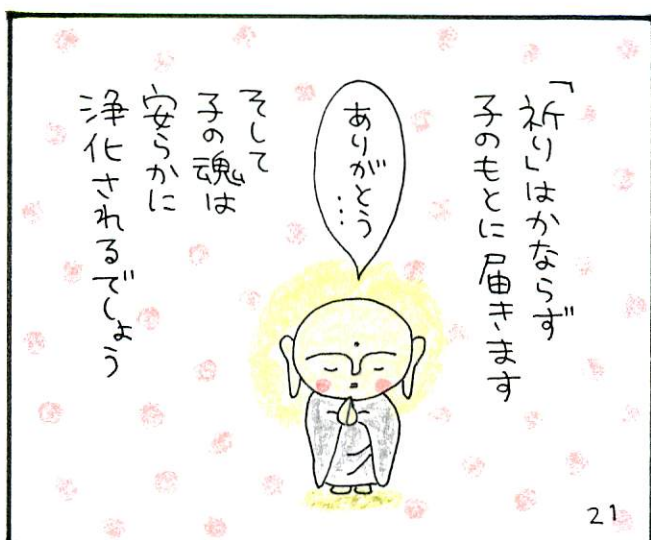 「祈り」はかならず
子のもとに届きます
ありがとう
…
そして
子の魂は
安らかに
浄化されるでしょう
21